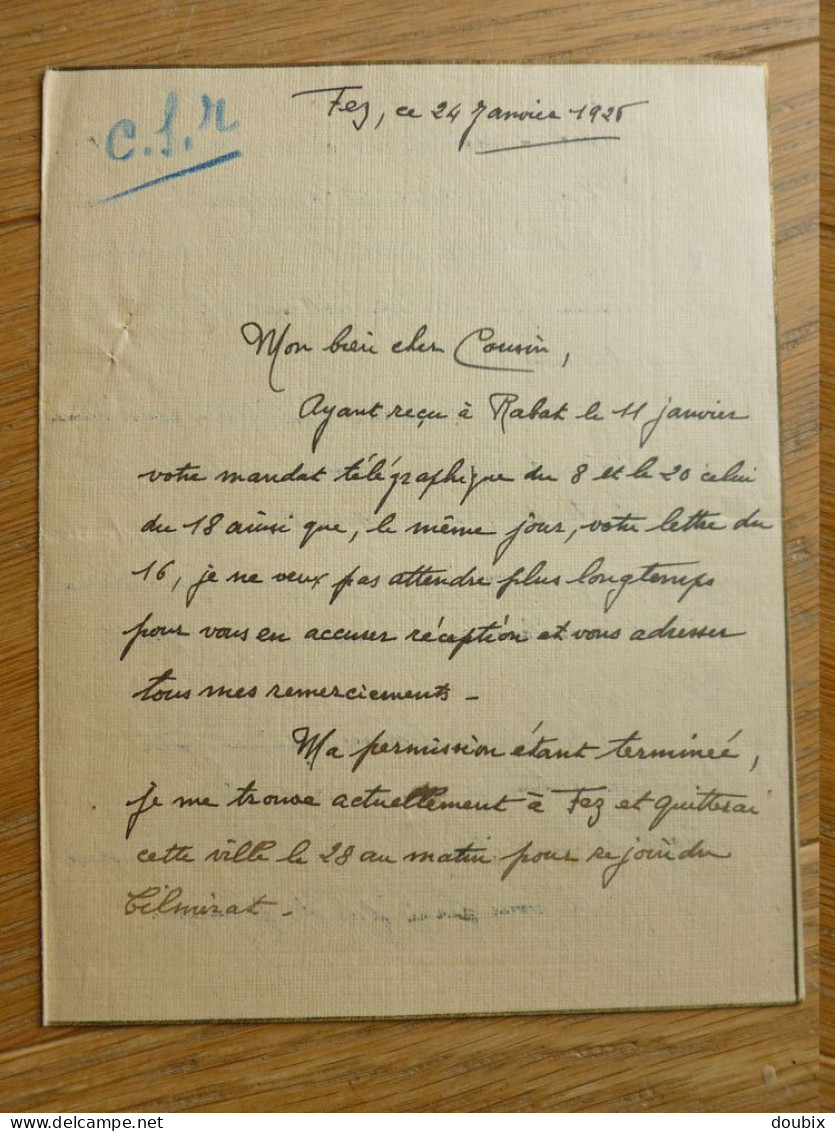 c.f.r
Fez, ce 24 Janvier 1926
Mon bien cher Cousin,
Ayant reçu à Rabat le 11 janvier
votre mandat télégraphique du 8 et le 20 celui
du 18 ainsi que, le même jour, votre lettre du
16, je ne veux pas attendre plus longtemps
pour vous en accuser réception et vous adresser
tous mes remerciements -
Ma permission étant terminée,
je me trouve actuellement à Fez et quitterai
cette ville le 28 au matin pour rejoindre
Tilmirat -
delcampe.net
doubix